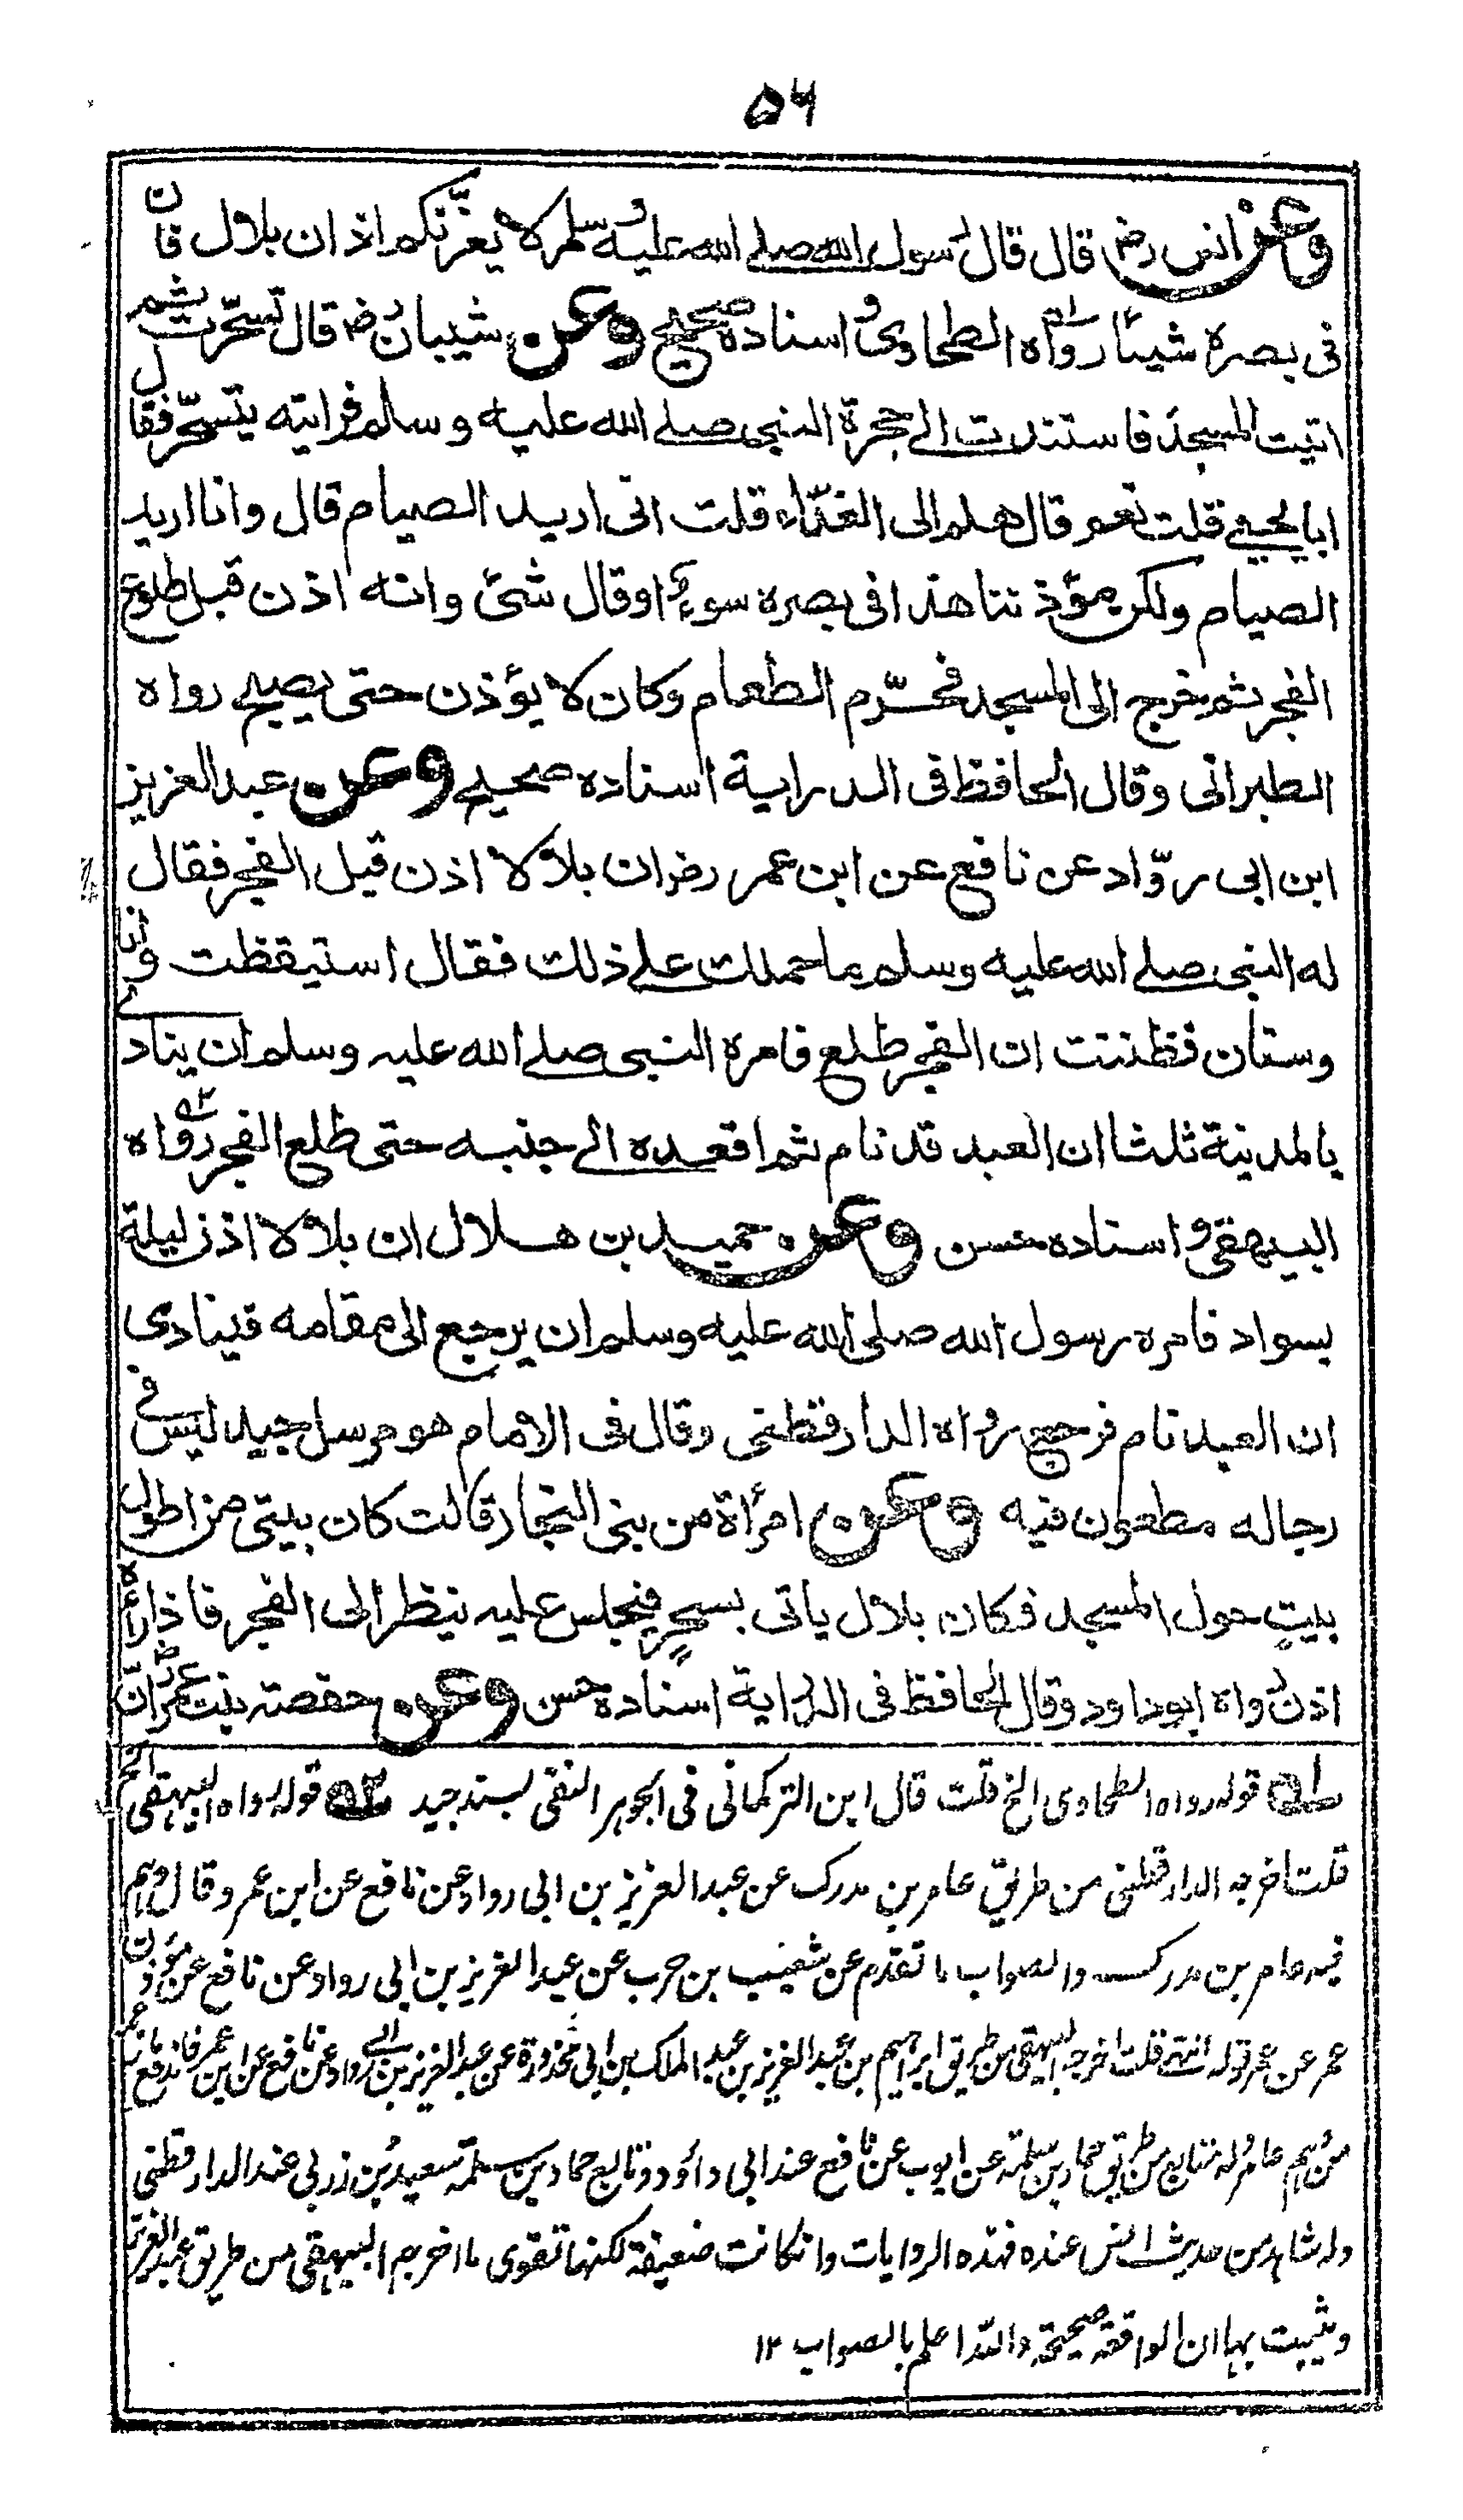 ٥٦
وعن انس رض قال قال رسول الله صلى الله عليه وسلم لا يغرّنكم اذان بلال فان
فى بصره شيئا رواه الطحاوى واسناده صحيح وعن شيبان رض قال تسحّرت ثم
اتيت المسجد فاستندت الى حجرة النبى صلى الله عليه وسلم فرايته يتسحّر فقال
ابا يحيى قلت نعم قال هلم الى الغداء قلت انى اريد الصيام قال وانا اريد
الصيام ولكن مؤذننا هذا فى بصره سوء او قال شئ وانه اذن قبل طلوع
الفجر ثم خرج الى المسجد فحرّم الطعام وكان لا يؤذن حتى يصبح رواه
الطبرانى وقال الحافظ فى الدراية اسناده صحيح وعن عبد العزيز
ابن ابى روّاد عن نافع عن ابن عمر رض ان بلالا اذن قبل الفجر فقال
له النبى صلى الله عليه وسلم ما حملك على ذلك فقال استيقظت وانا
وسنان فظننت ان الفجر طلع فامره النبى صلى الله عليه وسلم ان ينادى
بالمدينة ثلثا ان العبد قد نام ثم اقعده الى جنبه حتى طلع الفجر رواه
البيهقى واسناده حسن وعن حميد بن هلال ان بلالا اذن ليلة
بسواد فامره رسول الله صلى الله عليه وسلم ان يرجع الى مقامه فينادى
ان العبد نام فرجع رواه الدارقطنى وقال فى الامام هو مرسل جيد ليس فى
رجاله مطعون فيه وعن امرأة من بنى النجار قالت كان بيتى من اطول
بيت حول المسجد فكان بلال ياتى بسحر فيجلس عليه ينظر الى الفجر فاذا رأه
اذن رواه ابو داود وقال الحافظ فى الدراية اسناده حسن وعن حفصة بنت عمر رض انّ
له١ قوله رواه الطحاوى الخ قلت قال ابن التركمانى فى الجوهر النقى بسند جيد له٢ قوله رواه البيهقى الخ
قلت اخرجه الدارقطنى من طريق عامر بن مدرك عن عبد العزيز بن ابى رواد عن نافع عن ابن عمر وقال وهم
فيه عامر بن مدرك والصواب ما تقدم عن شعيب بن حرب عن عبد العزيز بن ابى رواد عن نافع عن مؤذن
عمر عن عمر قوله انتهى قلت اخرجه البيهقى من طريق ابراهيم بن عبد العزيز بن عبد الملك بن ابى محذورة عن عبد العزيز بن ابى رواد عن نافع عن ابن عمر فاندفع
من وهم عامر وله متابع من طريق حماد بن سلمة عن ايوب عن نافع عند ابى داؤد وتابع حماد بن سلمة سعيد بن زربى عند الدارقطنى
وله شاهد من حديث انس عنده فهذه الروايات وان كانت ضعيفة لكنها تقوى ما اخرجه البيهقى من طريق عبد العزيز
ويثبت بها ان الواقعة صحيحة والله اعلم بالصواب ١٢